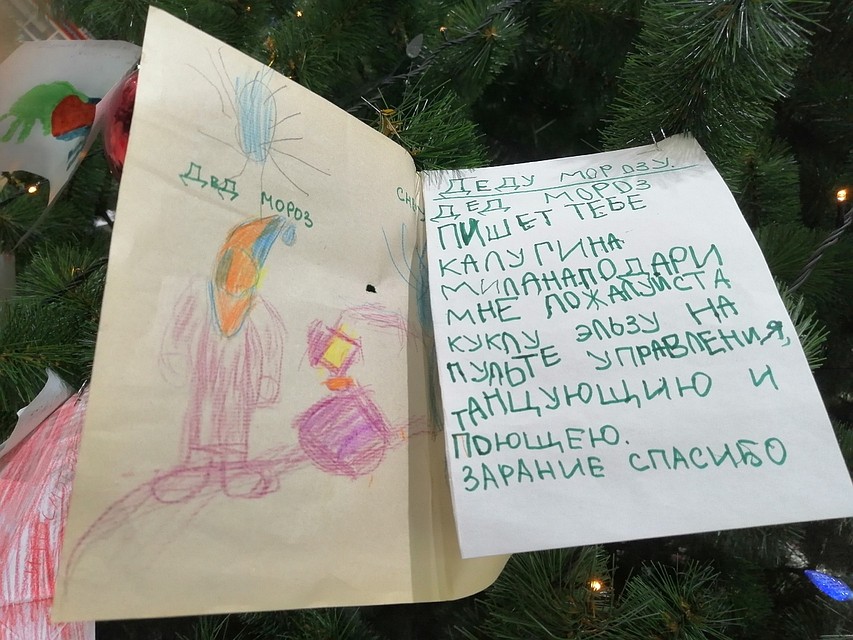 ДЕД МОРОЗ
ДЕДУ МОРОЗУ.
ДЕД МОРОЗ
ПИШЕТ ТЕБЕ
КАЛУГИНА
МИЛАНА.ПОДАРИ
МНЕ ПОЖАЛУЙСТА
КУКЛУ ЭЛЬЗУ НА
ПУЛЬТЕ УПРАВЛЕНИЯ,
ТАНЦУЮЩИЮ И
ПОЮЩЕЮ.
ЗАРАНИЕ СПАСИБО